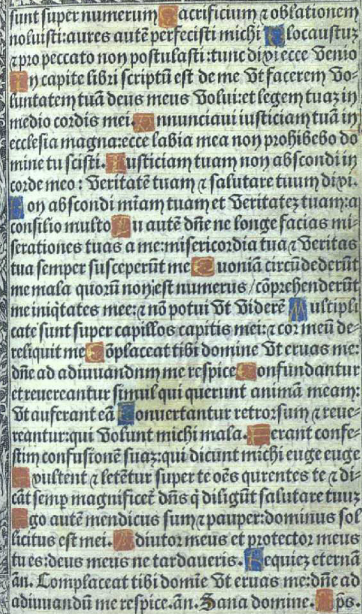 sunt super numerum Sacrificium ⁊ oblationem
noluisti: aures autē perfecisti michi Holocaustuȝ
⁊ pro peccato non postulasti: tunc dixi ecce venio
In capite libri scriptū est de me Vt facerem vo
luntatem tuā deus meus volui: et legem tuaȝ in
medio cordis mei. Annunciaui iusticiam tuā in
ecclesia magna: ecce labia mea non prohibebo do
mine tu scisti. Iusticiam tuam non abscondi in
corde meo: Veritatē tuam ⁊ salutare tuum dixi.
Non abscondi mīam tuam et Veritateȝ tuam: a
consilio multo Tu autē dn̄e ne longe facias mi
serationes tuas a me: misericordia tua ⁊ Veritas
tua semper susceperūt me Quoniā circūdederūt
me mala quorū non est numerus / cōprehenderūt
me iniq̄tates mee: ⁊ nō potui Vt viderē Multipli
cate sunt super capillos capitis mei: ⁊ cor meū de
reliquit me Cōplaceat tibi domine Vt eruas me:
dn̄e ad adiuuandum me respice Confundantur
et reuereantur simul qui querunt animā meam:
Vt auferant eā Conuertantur retrorsum ⁊ reue-
reantur: qui Volunt michi mala. Ferant confe-
stim confusionē suaȝ: qui dicunt michi euge euge
Exultent ⁊ letētur super te oēs qurentes te ⁊ di
cāt semp magnificet̄ dn̄s q̄ diligūt salutare tuuȝ
Ego autē mendicus sum ⁊ pauper: dominus sol
licitus est mei. Adiutor meus et protector meus
tu es: deus meus ne tardaueris. Requieȝ eternā
ān. Complaceat tibi domīe Vt eruas me: dn̄e ad
adiuuandū me respice. ān. Sana domine. ps